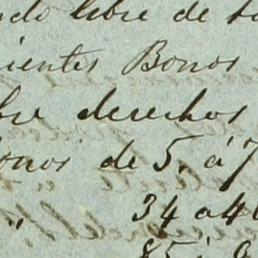 ndo libre de
ientes Bonos
bre derechos
onos de 5. á 7
" 34 a 4